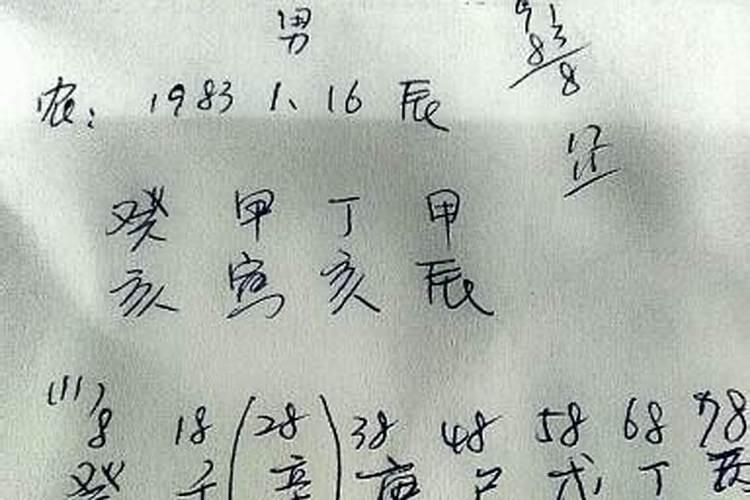 男
农: 1983 1、16 辰
癸 甲 丁 甲
亥 寅 亥 辰
8 18 28 38 48 58 68 78
癸 壬 辛 庚 己 戊 丁 丙